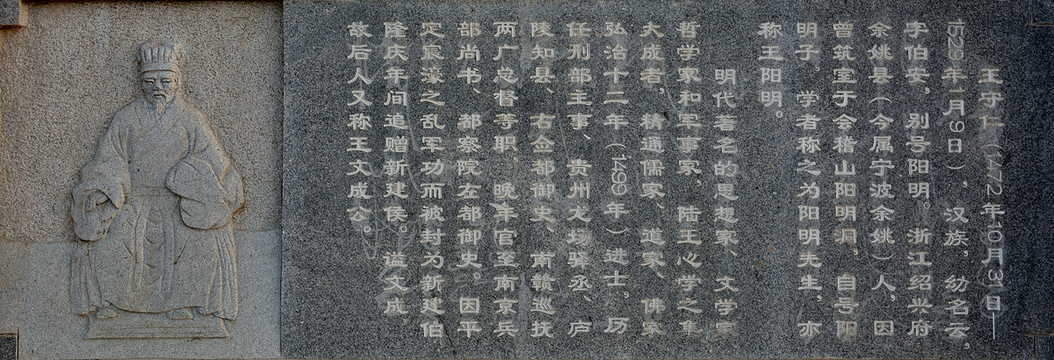 王守仁(1472年10月31日—
1529年1月9日)，汉族，幼名云，
字伯安，别号阳明。浙江绍兴府
余姚县(今属宁波余姚)人，因
曾筑室于会稽山阳明洞，自号阳
明子，学者称之为阳明先生，亦
称王阳明。
明代著名的思想家、文学家
哲学家和军事家，陆王心学之集
大成者，精通儒家、道家、佛家
弘治十二年(1499年)进士，历
任刑部主事、贵州龙场驿丞、庐
陵知县、右佥都御史、南赣巡抚
两广总督等职，晚年官至南京兵
部尚书、都察院左都御史。因平
定宸濠之乱军功而被封为新建伯
隆庆年间追赠新建侯。谥文成，
故后人又称王文成公。